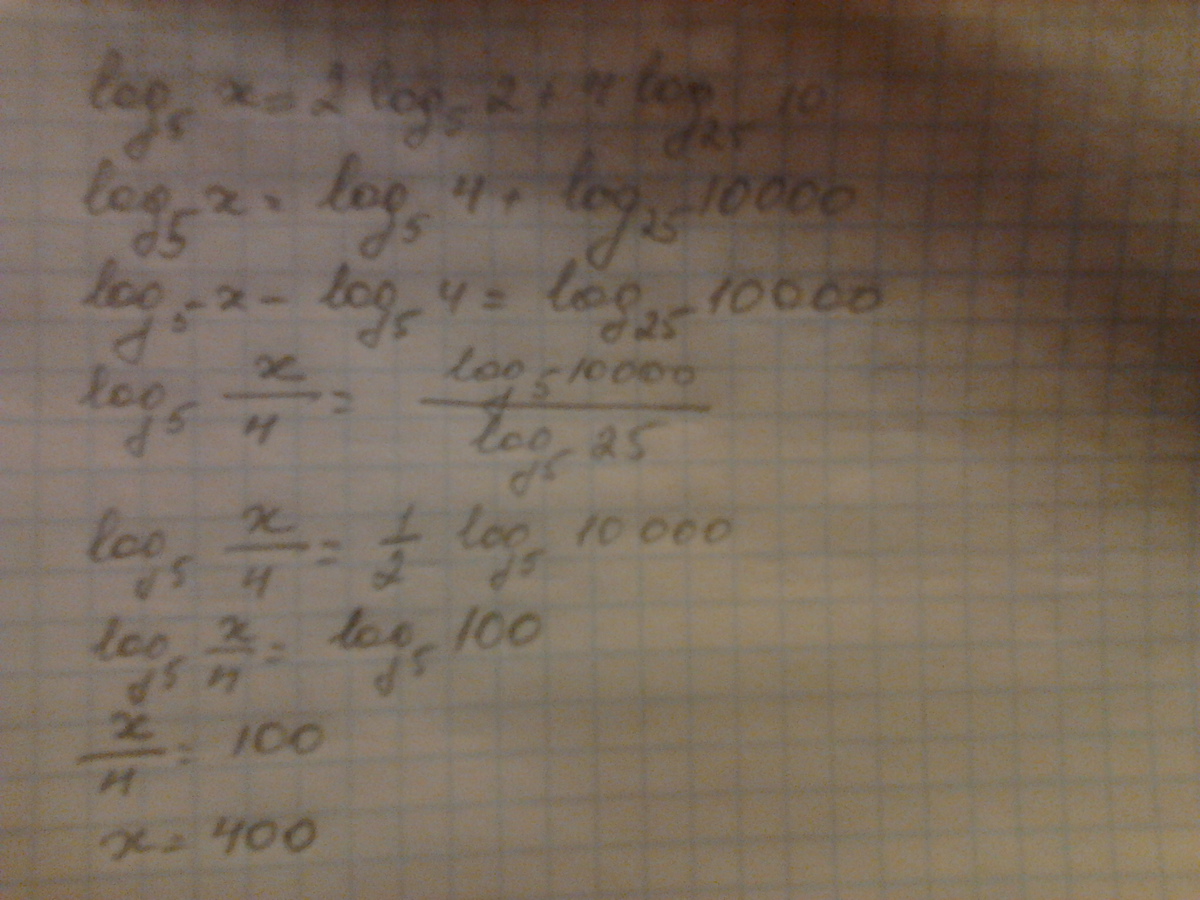 log₅ x = 2 log₅ 2 + 4 log₂₅ 10
log₅ x = log₅ 4 + log₂₅ 10000
log₅ x - log₅ 4 = log₂₅ 10000
log₅ x/4 = log₅ 10000 / log₅ 25
log₅ x/4 = 1/2 log₅ 10000
log₅ x/4 = log₅ 100
x/4 = 100
x = 400